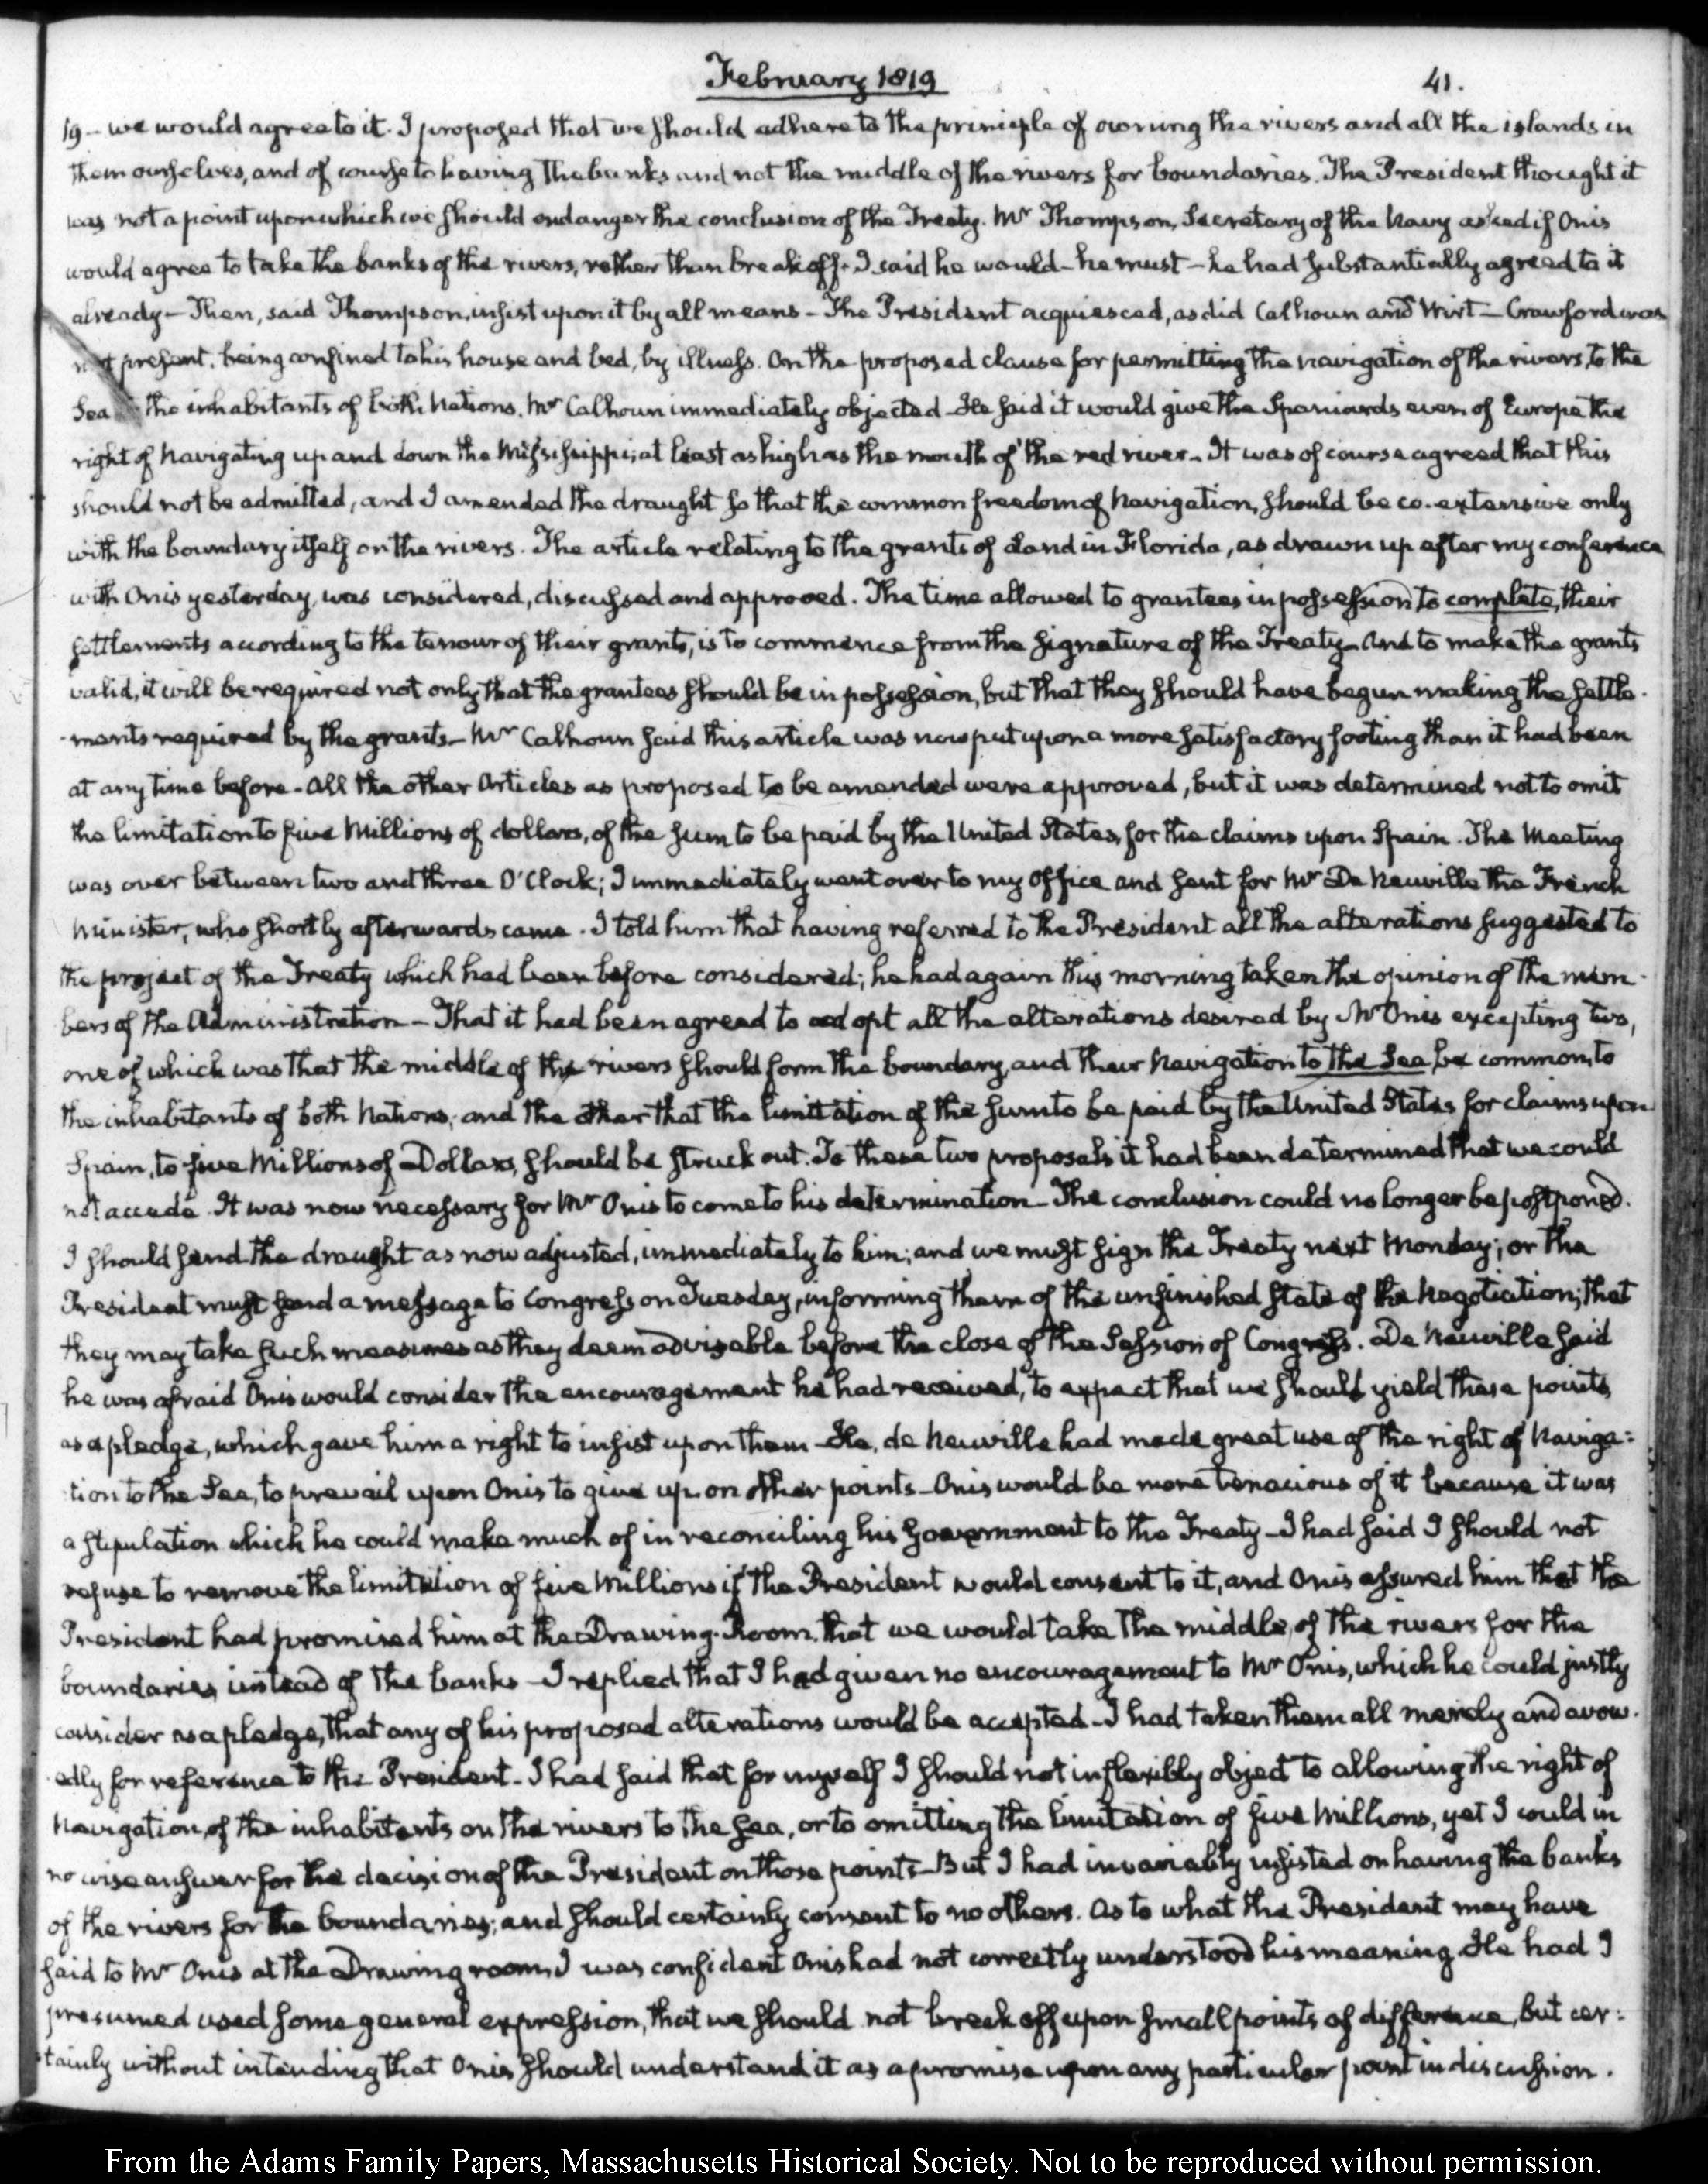 February 1819
41.
19 – we would agree to it. I proposed that we should adhere to the principle of owning the rivers and all the islands in
them ourselves, and of course to having the banks and not the middle of the rivers for boundaries. The President thought it
was not a point upon which we should endanger the conclusion of the Treaty. Mr Thompson, Secretary of the Navy asked if Onis
would agree to take the banks of the rivers, rather than break off. I said he would – he must – he had substantially agreed to it
already – Then, said Thompson, insist upon it by all means – The President acquiesced, as did Calhoun and Wirt – Crawford was
not present, being confined to his house and bed, by illness. On the proposed clause for permitting the navigation of the rivers, to the
Sea the inhabitants of both Nations, Mr Calhoun immediately objected – He said it would give the Spaniards even of Europe the
right of Navigating up and down the Mississippi; at least as high as the mouth of the red river – It was of course agreed that this
should not be admitted, and I amended the draught so that the common freedom of Navigation, should be co-extensive only
with the boundary itself on the rivers. The article relating to the grants of Land in Florida, as drawn up after my conference
with Onis yesterday, was considered, discussed and approved. The time allowed to grantees in possession to complete, their
settlements according to the tenour of their grants, is to commence from the signature of the Treaty – And to make the grants
valid, it will be required not only that the grantees should be in possession, but that they should have begun making the settle-
-ments required by the grants – Mr Calhoun said this article was now put upon a more satisfactory footing than it had been
at any time before – All the other Articles as proposed to be amended were approved, but it was determined not to omit
the limitation to five Millions of dollars, of the sum to be paid by the United States, for the claims upon Spain. The Meeting
was over between two and three O'Clock; I immediately went over to my Office and sent for Mr De Neuville the French
Minister, who shortly afterwards came. I told him that having referred to the President all the alterations suggested to
the project of the Treaty which had been before considered; he had again this morning taken the opinion of the mem-
bers of the Administration – That it had been agreed to adopt all the alterations desired by Mr Onis excepting two,
one of which was that the middle of the rivers should form the boundary, and their Navigation to the Sea be common, to
the inhabitants of both Nations; and the other that the limitation of the sum to be paid by the United States for claims upon
Spain, to five Millions of Dollars, should be struck out. To these two proposals it had been determined that we could
not accede. It was now necessary for Mr Onis to come to his determination – The conclusion could no longer be postponed.
I should send the draught as now adjusted, immediately to him; and we must sign the Treaty next Monday; or the
President must send a message to Congress on Tuesday, informing them of the unfinished state of the Negotiation; that
they may take such measures as they deem advisable before the close of the Session of Congress. De Neuville said
he was afraid Onis would consider the encouragement he had received, to expect that we should yield these points,
as a pledge, which gave him a right to insist upon them – He, de Neuville had made great use of the right of Naviga=
tion to the Sea, to prevail upon Onis to give up on other points – Onis would be more tenacious of it because it was
a stipulation which he could make much of in reconciling his Government to the Treaty – I had said I should not
refuse to remove the limitation of five Millions if the President would consent to it, and Onis assured him that the
President had promised him at the Drawing-Room, that we would take the middle, of the rivers for the
boundaries, instead of the banks – I replied that I had given no encouragement to Mr Onis, which he could justly
consider as a pledge, that any of his proposed alterations would be accepted – I had taken them all merely and avow-
edly for reference to the President – I had said that for myself I should not inflexibly object to allowing the right of
Navigation, of the inhabitants on the rivers to the Sea, or to omitting the limitation of five Millions, yet I could in
no wise answer for the decision of the President on those points – But I had invariably insisted on having the banks
of the rivers for the boundaries; and should certainly consent to no others. As to what the President may have
said to Mr Onis at the Drawing room, I was confident Onis had not correctly understood his meaning. He had I
presumed used some general expression, that we should not break off upon small points of difference, but cer=
tainly without intending that Onis should understand it as a promise upon any particular point in discussion.
From the Adams Family Papers, Massachusetts Historical Society. Not to be reproduced without permission.